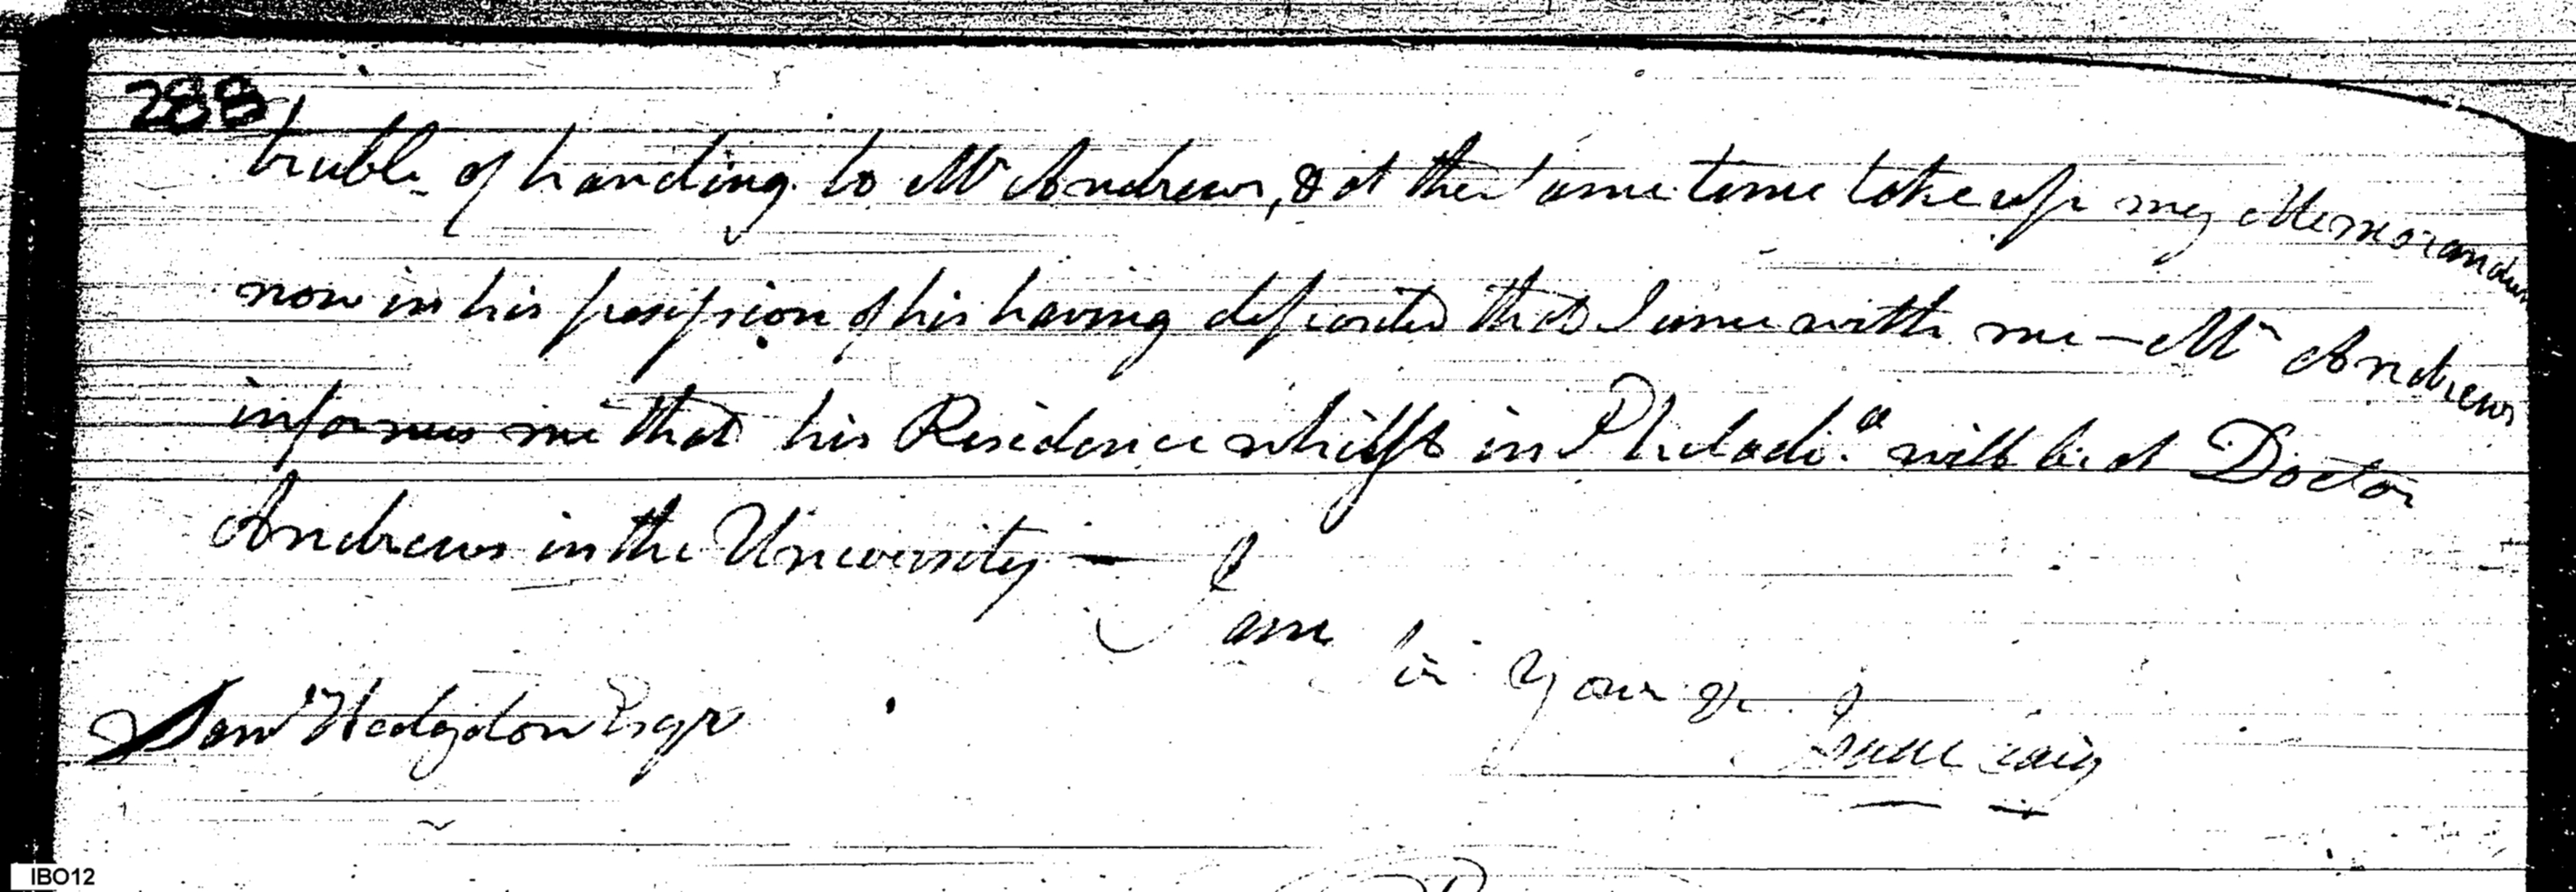 288
truble of handing to Mr Andrews, & at the same time take up my Memorandum
now in his possession of his having deposited that Sume with me — Mr Andrews
informes me that his Residence whilst in Philada. will be at Doctor
Andrews in the University —
I am
Sir Your &c
Saml Hodgdon Esqr
IBO12